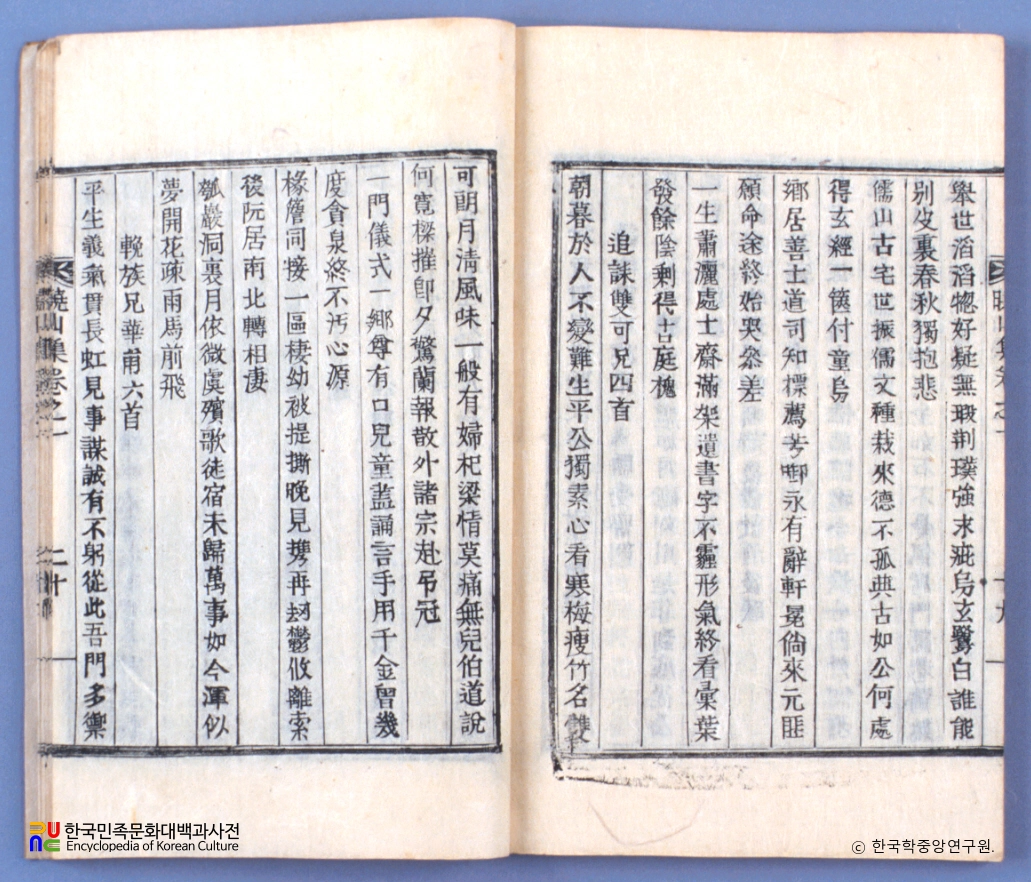 舉世滔滔惚好疑無瑕荆璞強求疵烏玄鷺白誰能
别皮裏春秋獨抱悲
儒山古宅世振儒文種栽來德不孤典古如公何處
得玄經一篋付童烏
鄕居善士道司知摽薦芳啣永有辭軒冕倘來元匪
願命途終始哭叅差
一生蕭灑處士齋滿架遺書字不霾形氣終看彙葉
發餘陰剩得古庭槐
追誄雙可兄四首
朝暮於人不變難生平公獨素心看寒梅瘦竹名雙
可朗月淸風味一般有婦杞梁情莫痛無兒伯道說
何寬樑摧卽夕驚蘭報散外諸宗赴吊冠
一門儀式一鄕尊有口兒童盖誦言手用千金曾幾
度貪泉終不汚心源
椽簷同接一區棲幼被提撕晩見携再刼鬱攸離索
後阮居南北轉相凄
瓠巖洞裏月依微虞殯歌徒宿未歸萬事如今渾似
夢開花疎雨馬前飛
輓族兄華甫六首
平生義氣貫長虹見事謀誠有不躬從此吾門多禦
曉山集卷之二
二十
한국민족문화대백과사전
Encyclopedia of Korean Culture
ⓒ 한국학중앙연구원.